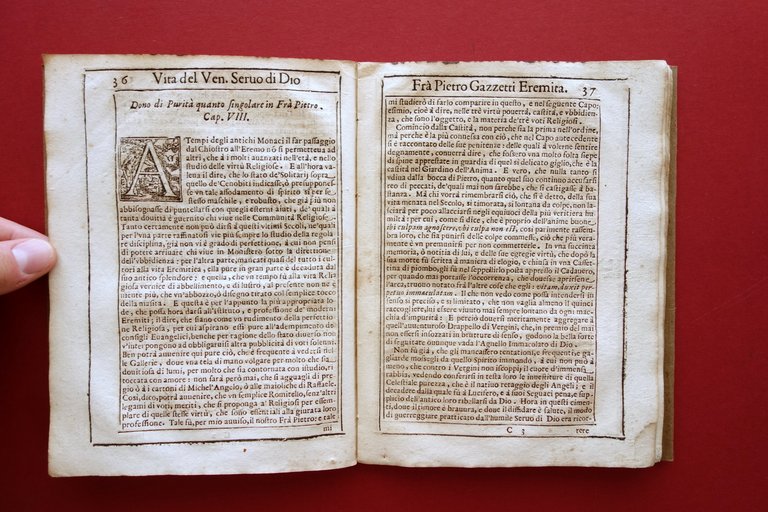 36 Vita del Ven. Seruo di Dio
Dono di Purità quanto singolare in Frà Pietro.
Cap. VIII.
A Tempi degli antichi Monaci il far passaggio
dal Chiostro all'Eremo nō si permetteua ad
altri, che à i molti auanzati nell'età, e nello
studio delle virtù Religiose. E all'hora va-
lena il dire, che lo stato de' Solitarij sopra
quello de' Cenobiti indicasse, ò presuppone-
se vn tale assodamento di spirito sì per se
stesso maschile, e robusto, che già più non
abbisognasse di puntellarsi con quegli esterni aiuti, de' quali à
tanta douitia è guernito chi viue nelle Communità Religiose.
Tanto certamente non può dirsi à questi vltimi Secoli, ne' quali
per l'vna parte raffinatosi vie più sempre lo studio della regola-
re disciplina, già non vi è grado di perfettione, à cui non pensi
di potere arriuare chi viue in Monistero sotto la direttione
dell'vbbidienza: per l'altra parte, mancati quasi del tutto i cul-
tori alla vita Eremitica, ella pure in gran parte è decaduta dal
suo antico splendore: e quella, che vn tempo fù alla vita Reli-
giosa vernice di abbellimento, e di lustro, al presente non ne è
niente più, che vn'abbozzo, ò disegno tirato col semplice tocco
della matita. E questa è per l'appunto la più appropriata lo-
de, che possa hora darsi all'istituto, e professione de' moderni
Eremiti; il dire, che siano come vn rudimento della perfettio-
ne Religiosa, per cui aspirano essi pure all'adempimento de'
consigli Euangelici, benche per ragione dello stato diuerso non
v'interpongono ad obbligarsi altra publicità di voti solenni.
Ben potrà auuenire qui pure ciò, che è frequente à vedersi nel-
le Gallerie, doue vna tela di mano volgare per molto che sia
douitiosa di lumi, per molto che sia contornata con studio, ri-
toccata con amore: non sarà però mai, che si agguagli di pre-
gio à i cartoni di Michel'Angelo, ò alle maioliche di Raffaele.
Così, dico, potrà auuenire, che vn semplice Romitello, senz'altri
legami di voti, meriti, che si proponga a' Religiosi per essem-
plare di quelle stesse virtù, che sono essentiali alla giurata loro
professione. Tale fù, per mio auuiso, il nostro Frà Pietro: e tale
mi
Frà Pietro Gazzetti Eremita. 37
mi studierò di farlo comparire in questo, e nel seguente Capo:
esimio, cioè à dire, nelle trè virtù pouertà, castità, e vbbidien-
za, che sono l'oggetto, e la materia de' trè voti Religiosi.
Comincio dalla Castità, non perche sia la prima nell'ordine,
mà perche hà più la connessa con ciò, che nel Capo antecedente
si è raccontato delle sue penitenze: delle quali à volerne sentire
degnamente, conuerrà dire, che fossero vna molto folta siepe
di spine apprestate in guardia di quel sì delicato giglio, che è la
castità nel Giardino dell'Anima. E vero, che nulla tanto fù
vdiua dalla bocca di Pietro, quanto quel suo continuo accusarsi
reo di peccati, de' quali mai non sarebbe, che si castigasse à ba-
stanza. Mà chi vorrà rimembrarsi ciò, che si è detto, della sua
vita menata nel Secolo, sì timorata, sì lontana da colpe, non la-
sciarà per poco allacciarsi negli equiuoci della più veritiera hu-
miltà: per cui, come si dice, che è proprio dell'anime buone
ibi culpam agnoscere, vbi culpa non est, così parimente sem-
brara loro, che sia punirsi delle colpe commesse, ciò che più vera-
mente è vn premunirsi per non commetterle. In vna succinta
memoria, ò notitia di lui, e delle sue egregie virtù, che dopò la
sua morte fù scritta à maniera di elogio, e chiusa in vna Casset-
tina di piombo, gli fù nel sepellirlo posta appresso il Cadauero,
per quando mai più occorresse di nuouo aprirsene
l'arca; truouo notato frà l'altre cose che egli: vitam duxit per-
petim immaculatam. Il che non vedo come possa intendersi in
senso sì preciso, e sì limitato, che non vaglia almeno il quinci
raccogliere, lui essere viuuto mai sempre lontano da ogni mac-
chia d'impurità: E perciò douersi meritamente aggregare à
quell'auuenturoso Drappello di Vergini, che, in premio del mai
non essersi insozzati in brutture di senso, godono la bella sorte
di seguitare ouunque vada l'Agnello Immacolato di Dio.
Non fù già, che gli mancassero tentationi, frequenti e ga-
gliarde mossegli da quello Spirito immondo, à cui non può à
meno, che contro i Vergini non iscoppij il cuore d'immensa
rabbia, vedendo conseruarsi in testa loro le interiture di quella
Celestiale purezza, che è il natiuo retaggio degli Angeli; e il
decadere dalla quale fù à Lucifero, e à i suoi Seguaci pena, e sup-
plicio dell'antico loro ribellarsi da Dio. Hora in questi cimen-
ti, doue il timore è brauura, e doue il diffidare è salute, il modo
di guerreggiare pratticato dall'humile Seruo di Dio era ricor-
C 3 rere